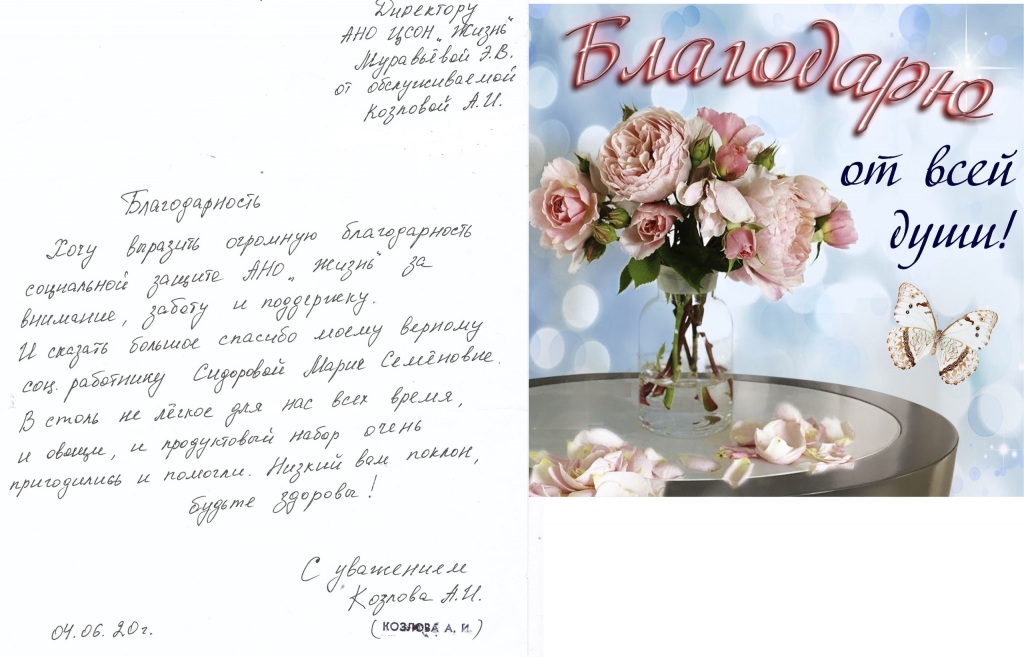 Директору
АНО ЦСОН „Жизнь"
Муравьёвой Э.В.
от обслуживаемой
Козловой А.И.
Благодарность
Хочу выразить огромную благодарность
социальной защите АНО „Жизнь" за
внимание, заботу и поддержку.
И сказать большое спасибо моему верному
соц. работнику Сидоровой Марие Семёновне.
В столь не лёгкое для нас всех время,
и овощи, и продуктовый набор очень
пригодились и помогли. Низкий вам поклон,
будьте здоровы!
С уважением
Козлова А.И.
04.06.20г.
(КОЗЛОВА А. И.)
Благодарю
от всей
души!